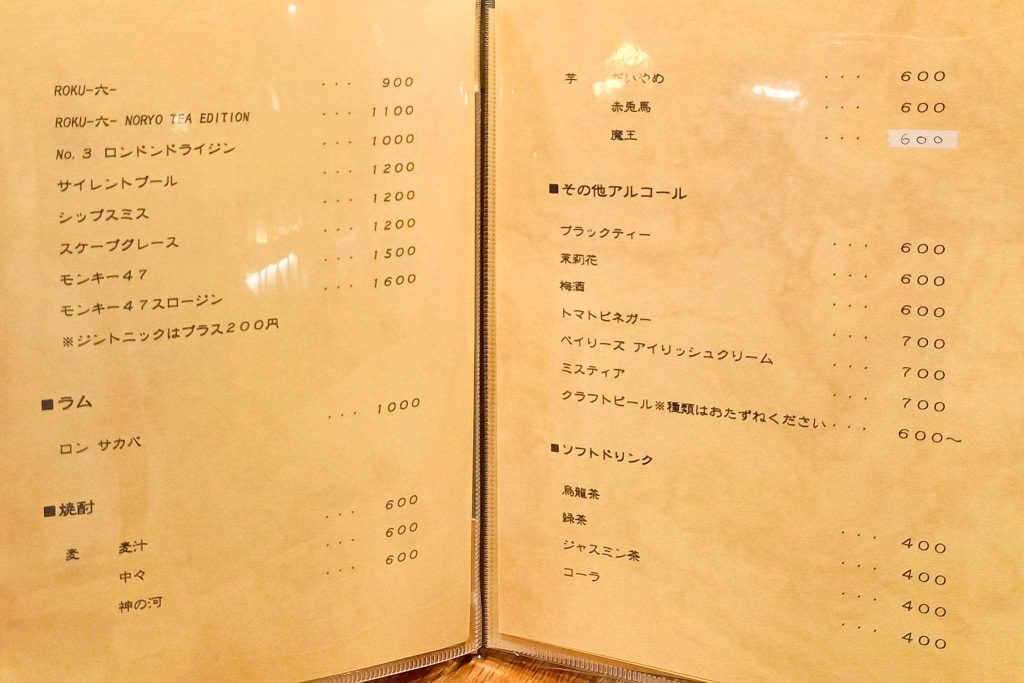 ROKU-六- ... 900
ROKU-六- NORYO TEA EDITION ... 1100
No.3 ロンドンドライジン ... 1000
サイレントプール ... 1200
シップスミス ... 1200
スケープグレース ... 1200
モンキー47 ... 1500
モンキー47スロージン ... 1600
※ジントニックはプラス200円
■ラム
ロン サカパ ... 1000
■焼酎
麦 麦汁 ... 600
中々 ... 600
神の河 ... 600
芋 だいやめ ... 600
赤兎馬 ... 600
魔王 ... 600
■その他アルコール
ブラックティー ... 600
茉莉花 ... 600
梅酒 ... 600
トマトビネガー ... 700
ベイリーズ アイリッシュクリーム ... 700
ミスティア ... 700
クラフトビール※種類はおたずねください... 600～
■ソフトドリンク
烏龍茶 ... 400
緑茶 ... 400
ジャスミン茶 ... 400
コーラ ... 400